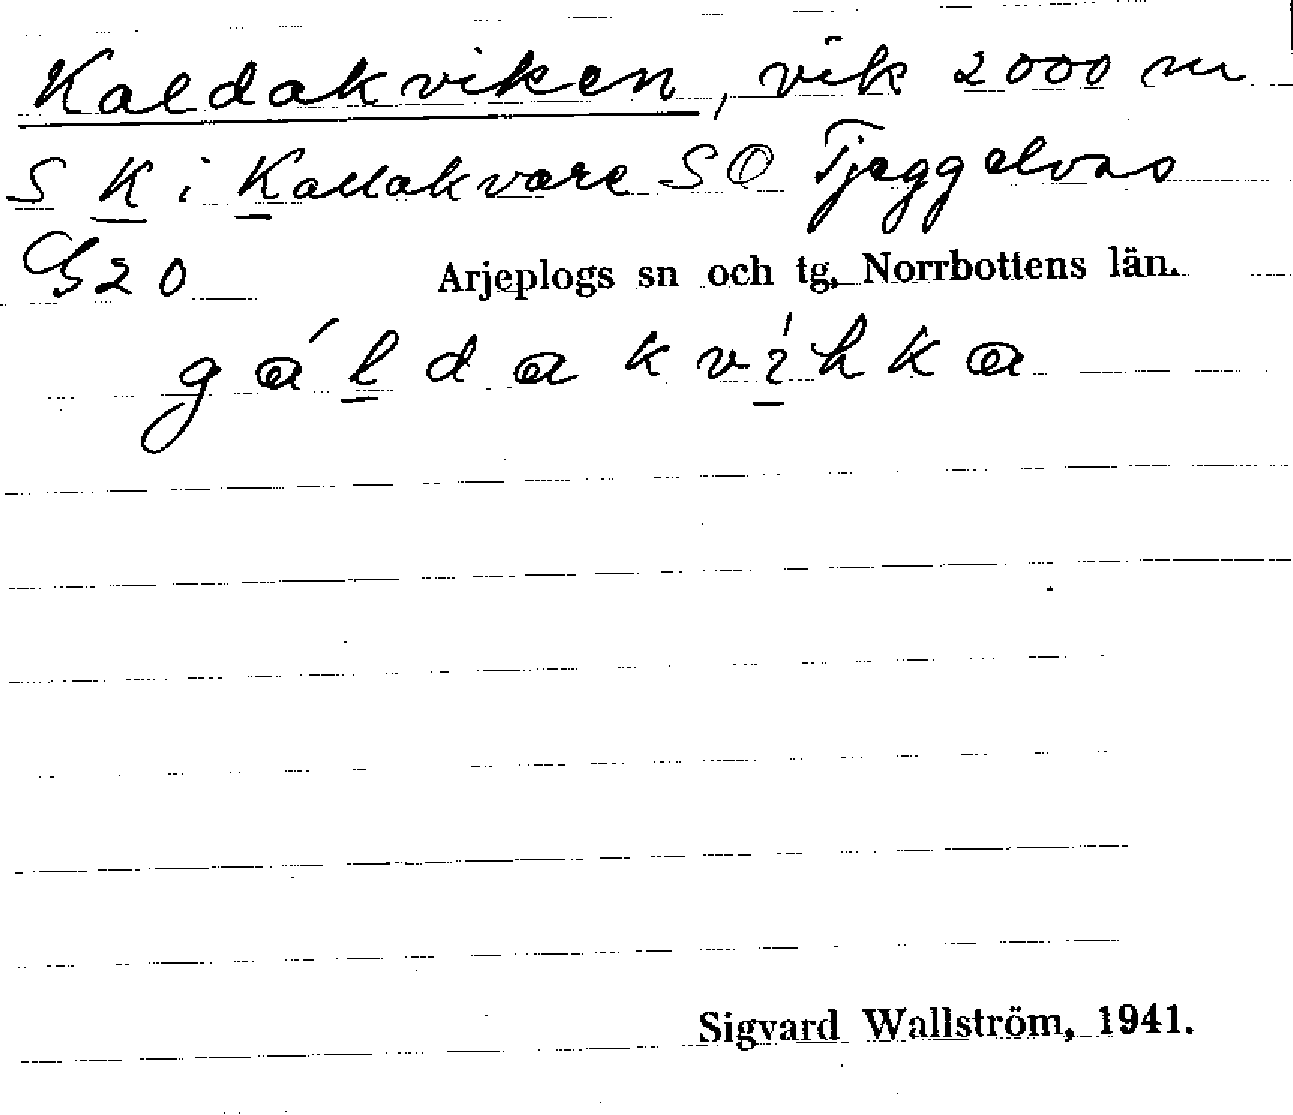 Kaldakviken, vik 2000 m
S K i Kaldakvare SO Tjeggelvas
G20 Arjeplogs sn och tg, Norrbottens län.
gáldakvìhka
Sigvard Wallström, 1941.